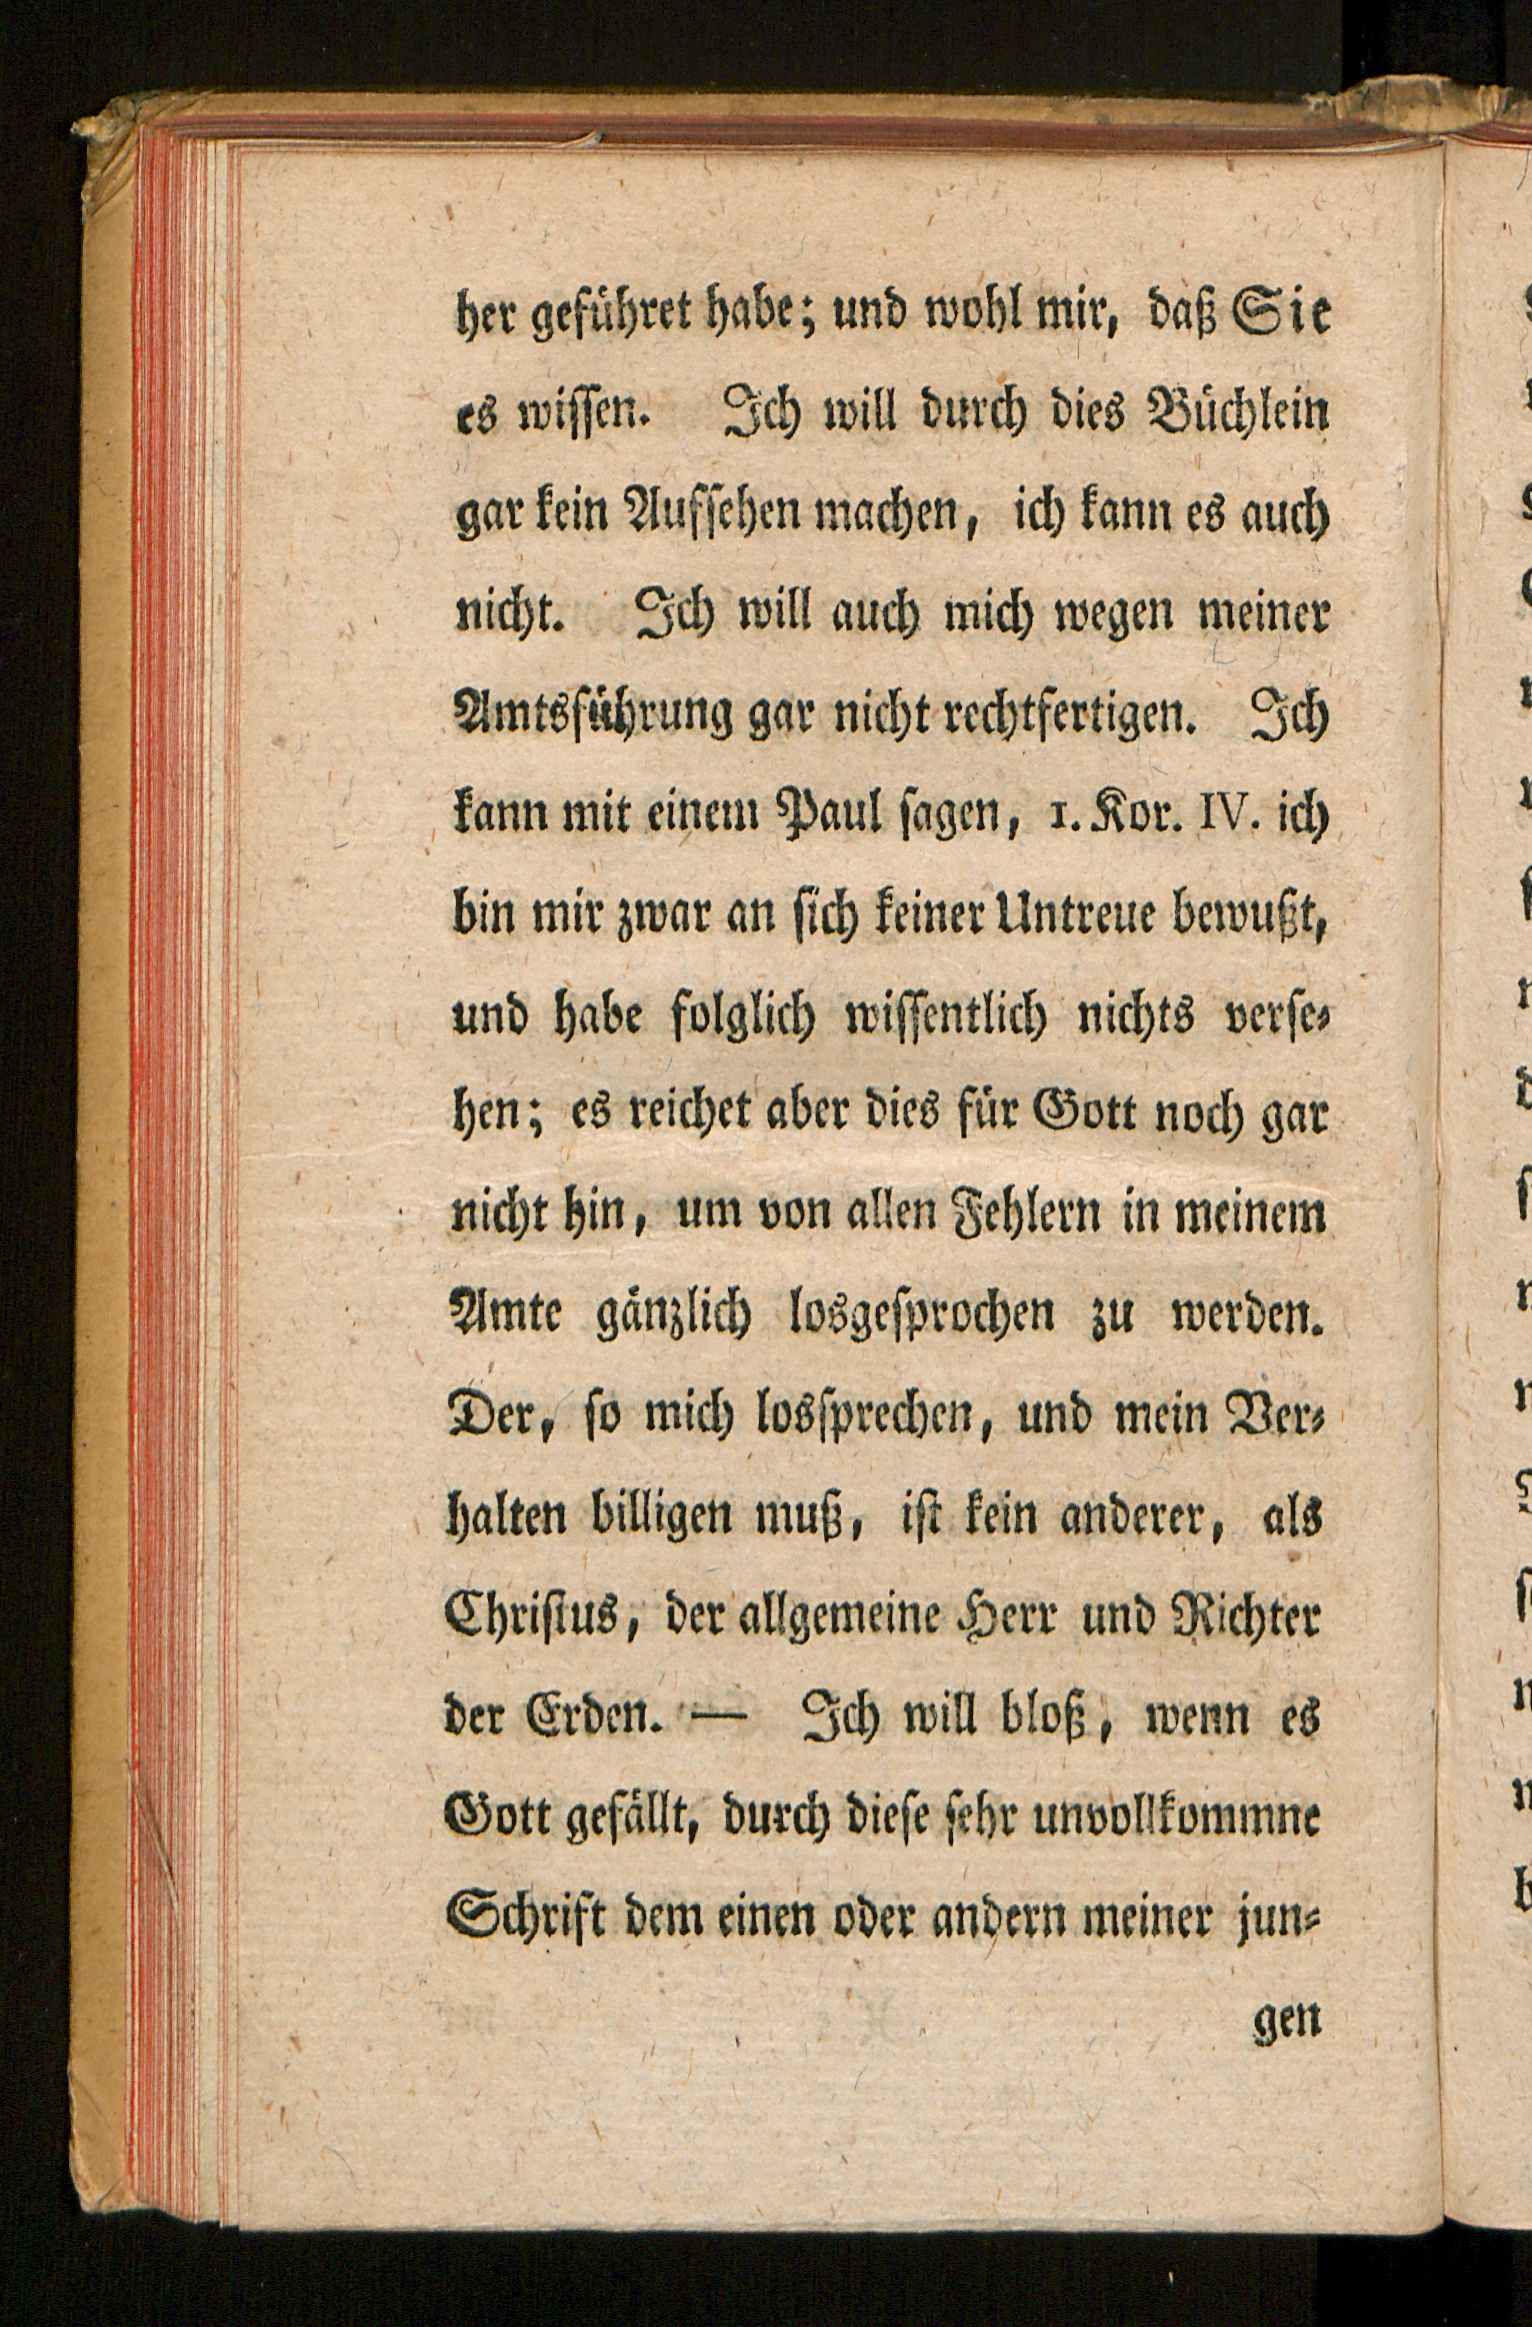 her geführet habe; und wohl mir, daß Sie
es wissen. Ich will durch dies Büchlein
gar kein Aufsehen machen, ich kann es auch
nicht. Ich will auch mich wegen meiner
Amtsführung gar nicht rechtfertigen. Ich
kann mit einem Paul sagen, 1. Kor. IV. ich
bin mir zwar an sich keiner Untreue bewußt,
und habe folglich wissentlich nichts verse-
hen; es reichet aber dies für Gott noch gar
nicht hin, um von allen Fehlern in meinem
Amte gänzlich losgesprochen zu werden.
Der, so mich lossprechen, und mein Ver-
halten billigen muß, ist kein anderer, als
Christus, der allgemeine Herr und Richter
der Erden. — Ich will bloß, wenn es
Gott gefällt, durch diese sehr unvollkommne
Schrift dem einen oder andern meiner jun-
gen